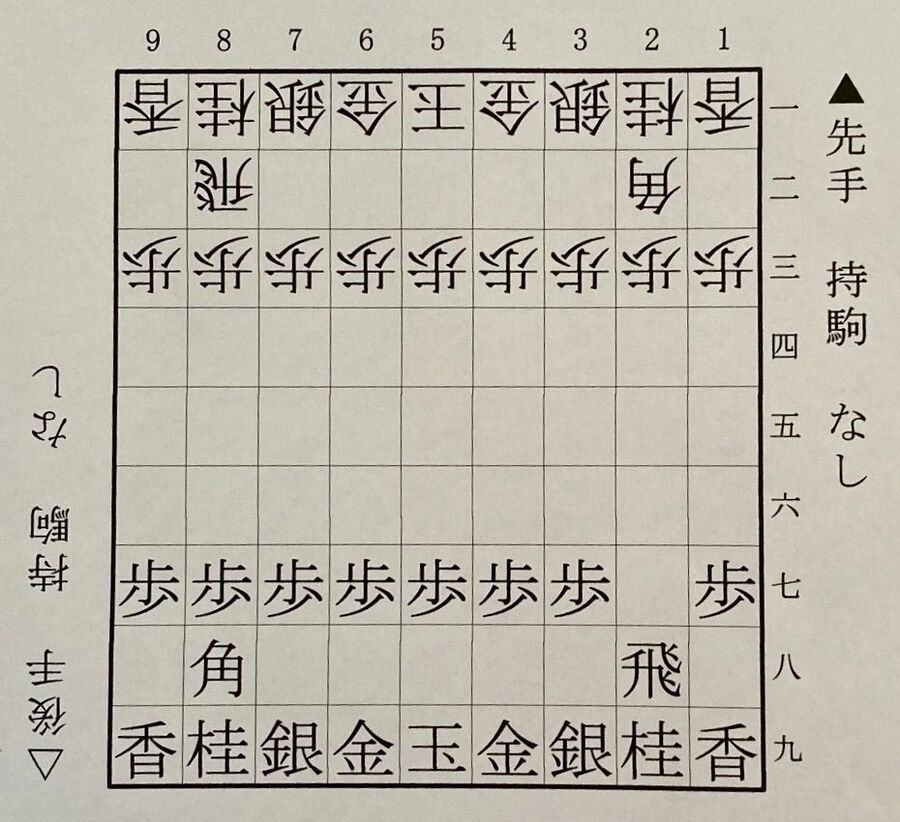 9 8 7 6 5 4 3 2 1
香 桂 銀 金 王 金 銀 桂 香 一
飛 角 二
歩 歩 歩 歩 歩 歩 歩 歩 歩 三
四
五
六
歩 歩 歩 歩 歩 歩 歩 歩 七
角 飛 八
香 桂 銀 金 玉 金 銀 桂 香 九
▲先手 持駒 なし
△後手 持駒 なし